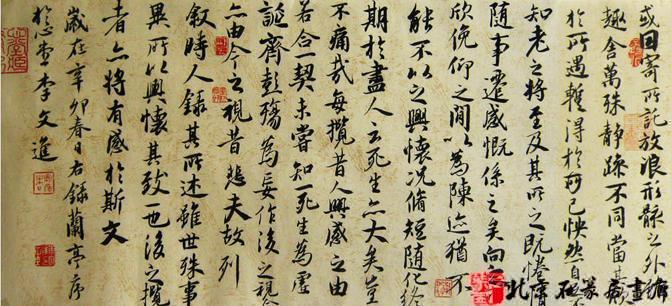 或因寄所託放浪形骸之外雖
趣舍萬殊靜躁不同當其
於所遇暫得於己快然自
知老之將至及其所之既惓
隨事遷感慨係之矣向之
欣俛仰之間以為陳迹猶不
能不以之興懷況脩短隨化終
期於盡人云死生亦大矣豈
不痛哉每攬昔人興感之由
若合一契未嘗知一死生為虛
誕齊彭殤為妄作後之視今
亦由今之視昔悲夫故列
敘時人錄其所述雖世殊事
異所以興懷其致一也後之攬
者亦將有感於斯文
歲在辛卯春日右錄蘭亭序
李文進